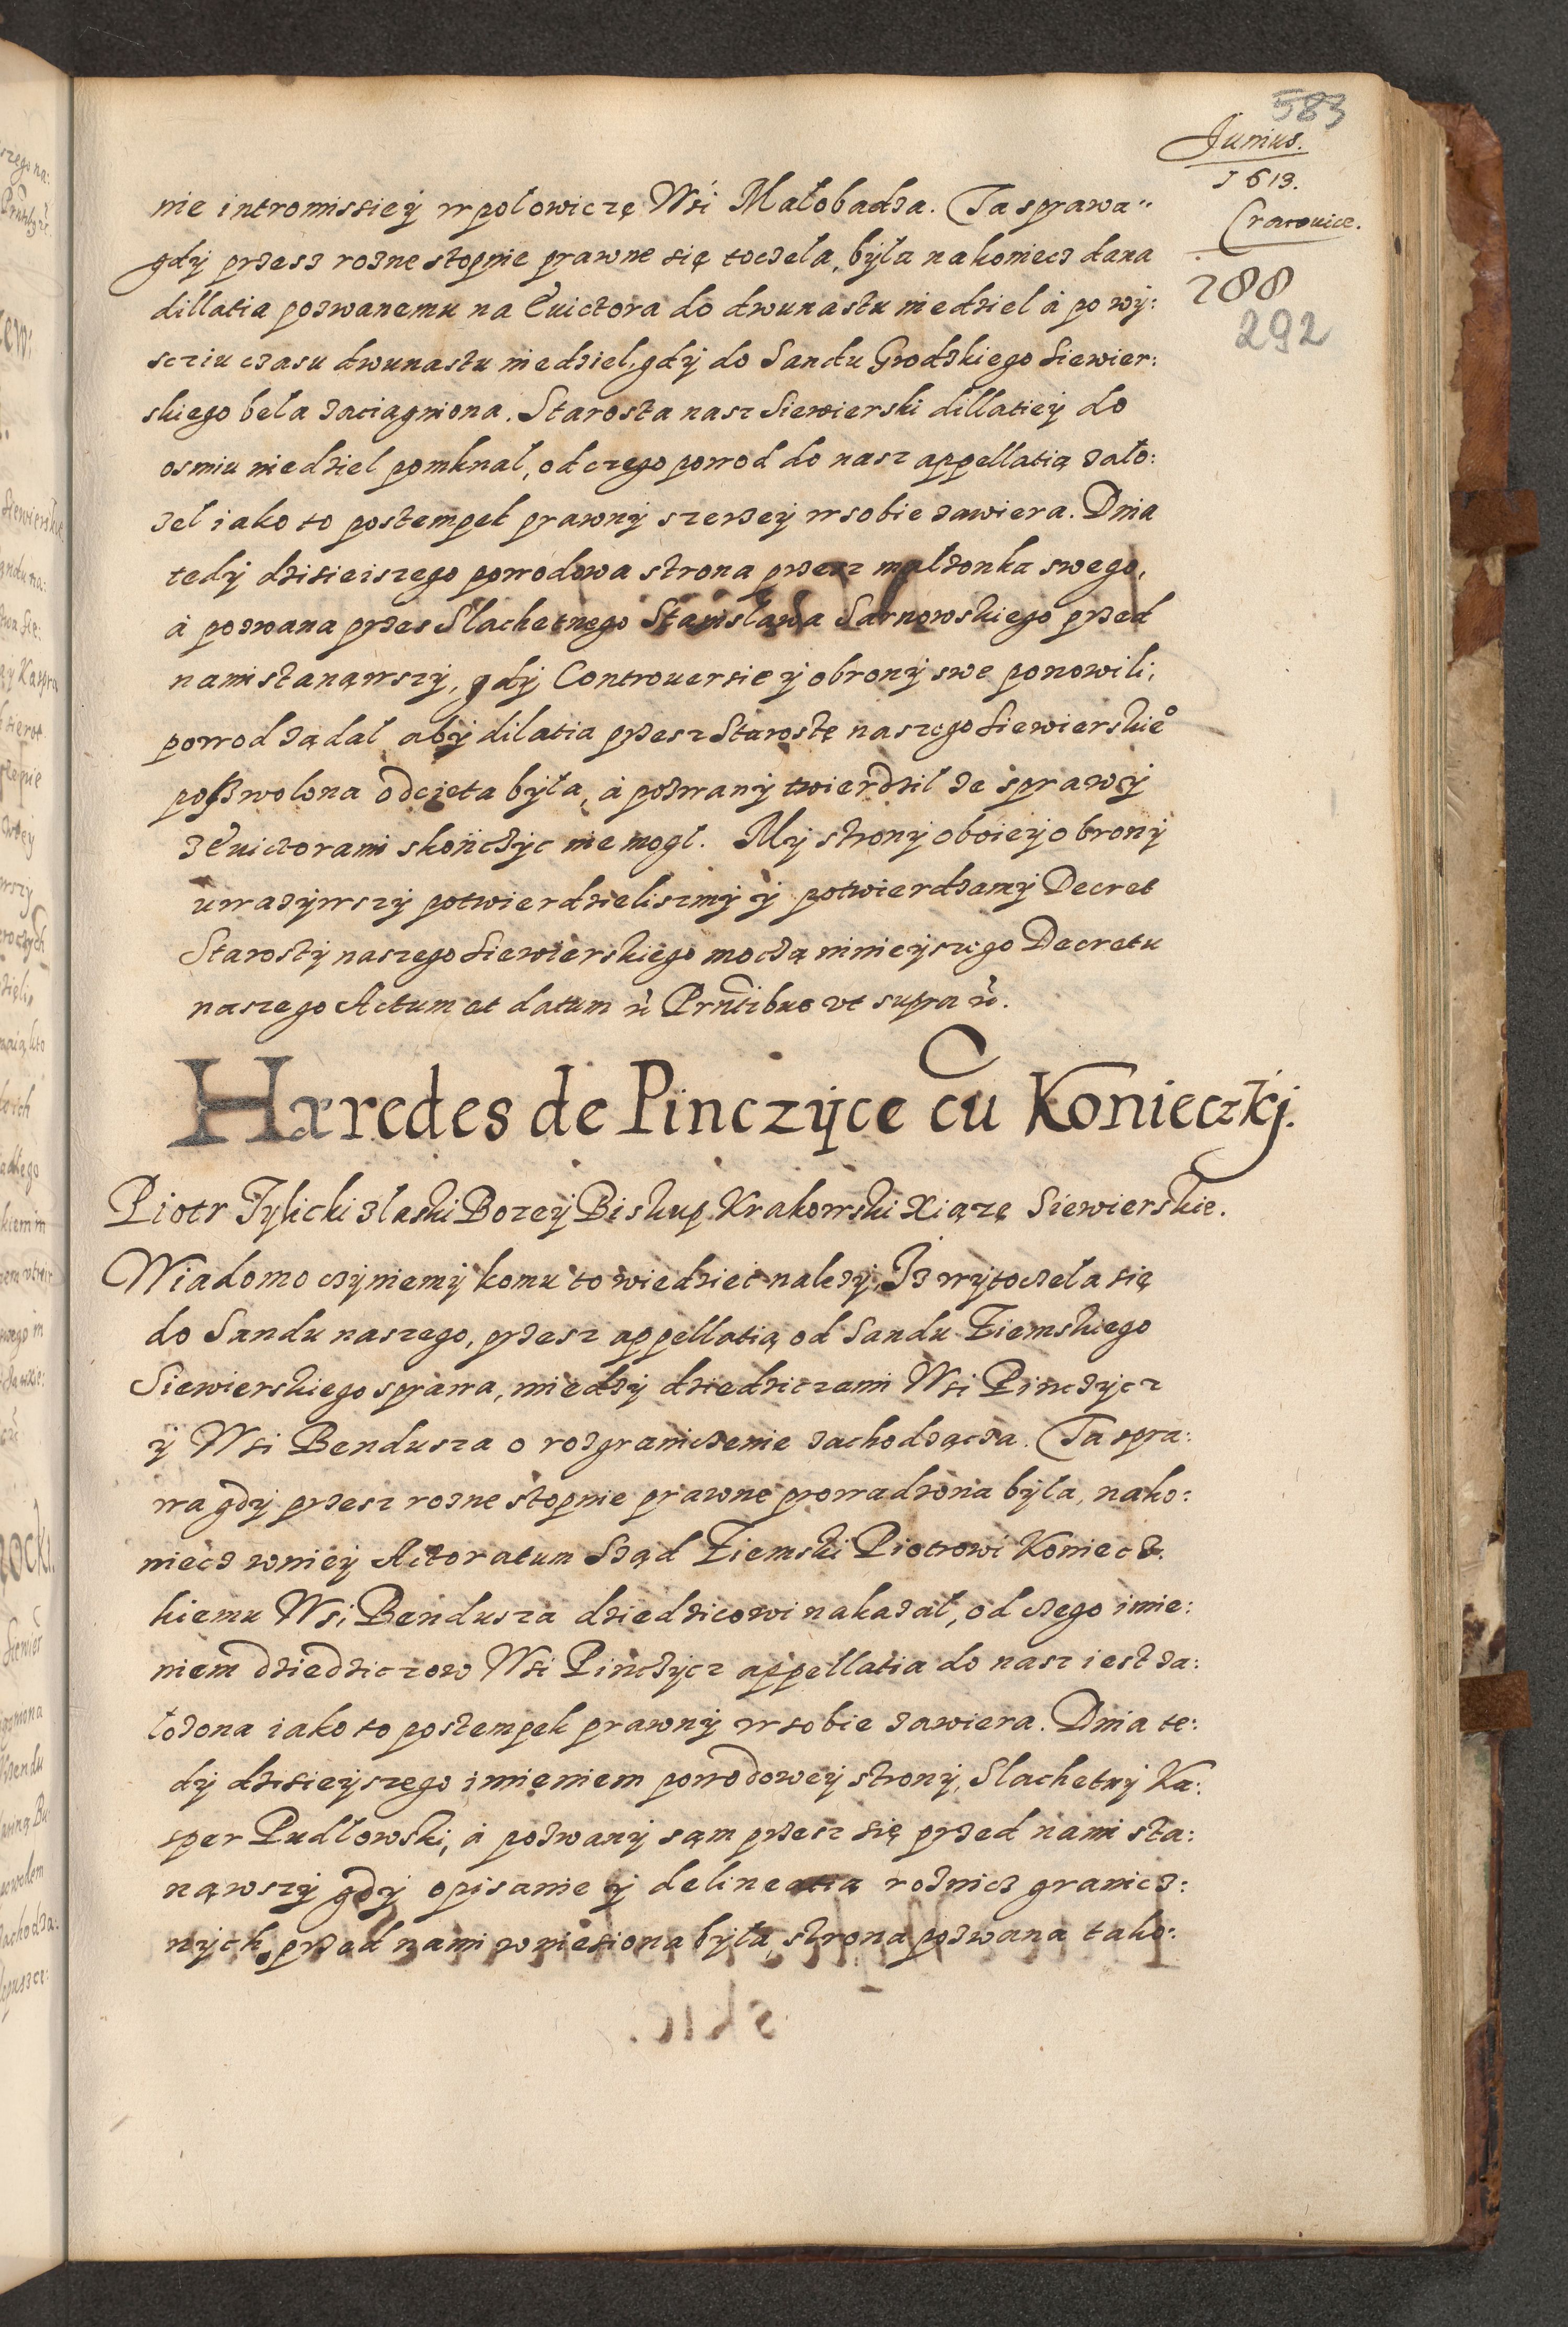 583
Junius.
1613.
Cracouice.
288
292
nie intromissiey w polowiczę Wśi Małobadza. Ta sprawa
gdy przesz rozne stopnie prawne się toczela, była nakoniecz dana
dillatia pozwanemu na Euictora do dwunastu niedziel à po wy:
sciu czasu dwunastu niedziel, gdy do Sandu Grodzkiego Siewier:
skiego bela zaciągniona. Starosta nasz Siewierski dillatiey do
osmiu niedziel pomknal, od czego powod do nasz appellatią zało:
zel iako to postempek prawny szerzey w sobie zawiera. Dnia
tedy dzisieiszego powodowa strona przesz małzonka swego,
à pozwana przes Slachetnego Stanisława Sarnowskiego przed
nami stanąwszy, gdy Controuersie y obrony swe ponowili,
powod ządal aby dilatia przesz Starostę naszego Siewierskie°
pozwolona odcięta była, à pozwany twierdzil ze sprawy
z Euictorami skończyc nie mogł. My strony oboiey obrony
uwazywszy potwierdzieliszmy y potwierdzamy Decret
Starosty naszego Siewierskiego moczą ninieyszego Decretu
naszego Actum et datum ut Prntibus vt supra
Hæredes de Pinczyce cu Konieczkj.
Piotr Tylicki z laski Bozey Biskup Krakowski Xiązę Siewierskie.
Wiadomo czyniemy komu to wiedzieć nalezy, Iz wytoczeła się
do Sandu naszego, przesz appellatią od Sandu Ziemskiego
Siewierskiego sprawa, miedzy dziedziczami Wsi Pinczycz
y Wsi Bendusza o rozgraniczenie zachodzącza. Ta spra:
wa gdy przesz rozne stopnie prawne prowadzona była, nako:
niecz w niey Actoratum Sząd Ziemski Piotrowi Koniecz.
kiemu Wsi Bendusza dziedzicowi nakazał, od czego imie:
niem dziedziczow Wsi Pinczycz appellatia do nasz iest za:
łozona iako to postempek prawny w sobie zawiera. Dnia te:
dy dzisieyszego imieniem powodowey strony, Slachetny Ka:
sper Pudłowski, à pozwany sąm przesz się przed nami sta:
nąwszy gdy opisanie y delineatia roznicz granicz:
nych przed nami wniesiona była, strona pozwana tako: